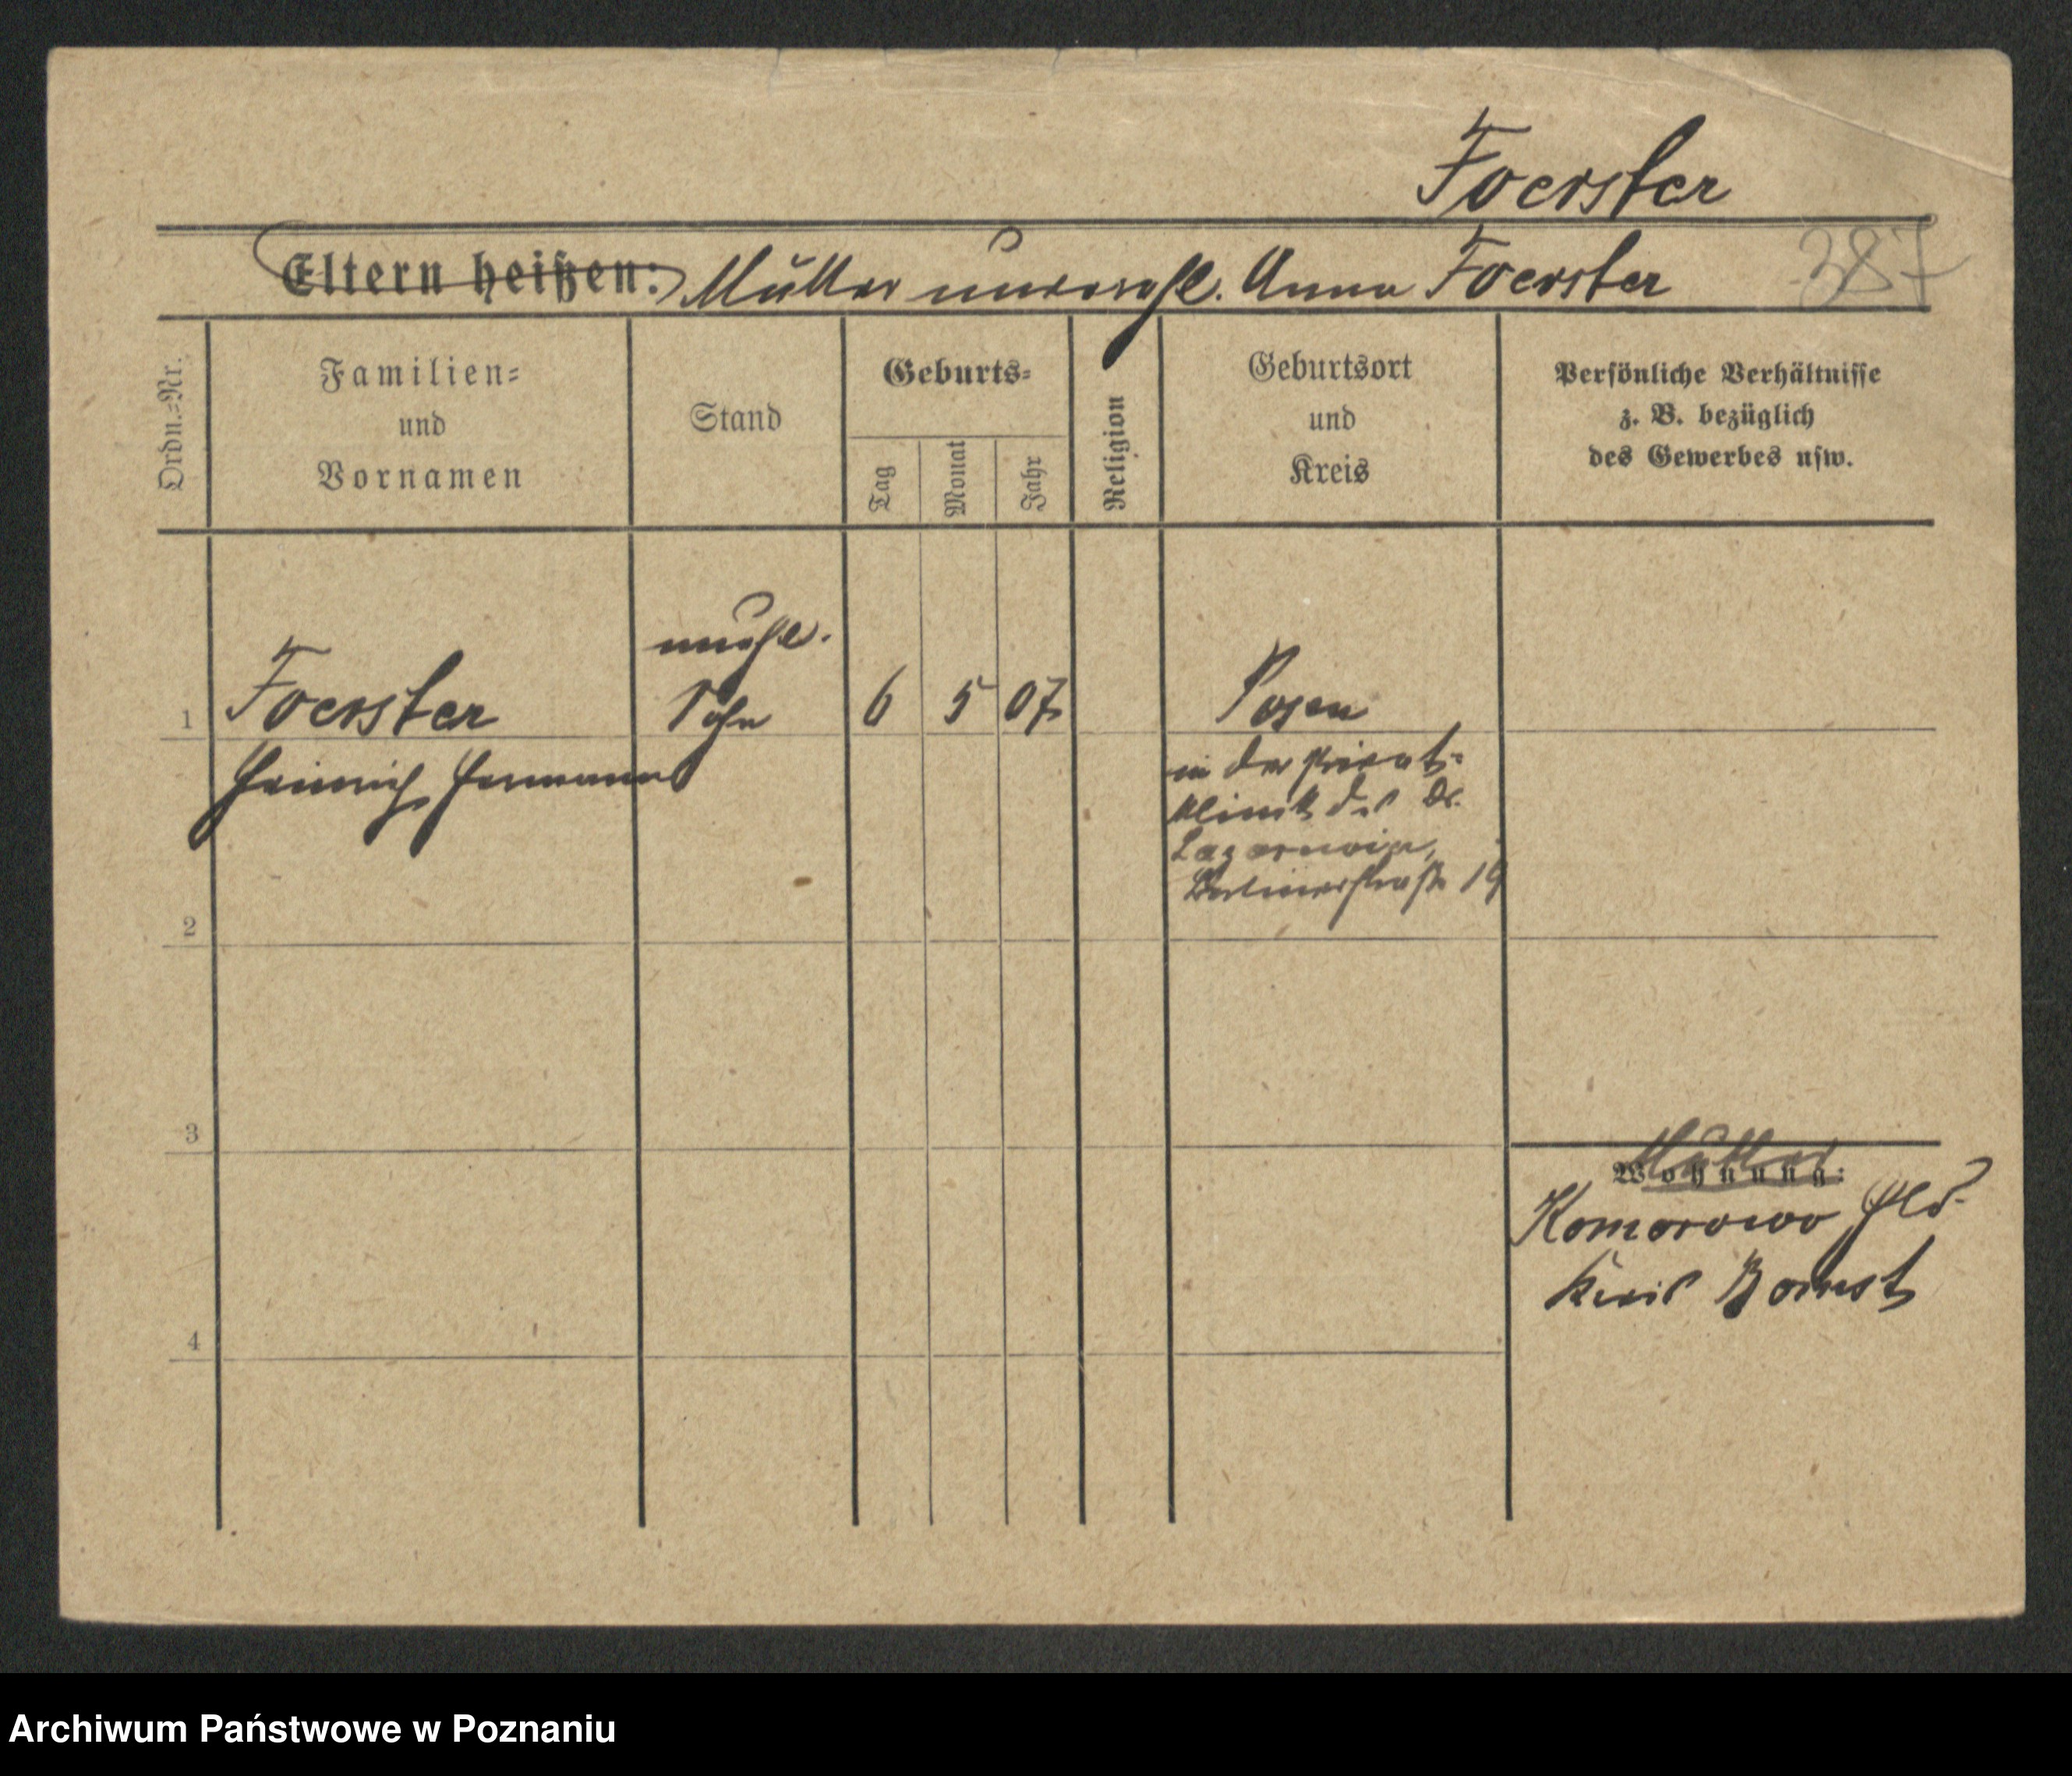 Foerster
Eltern heißen: Mutter unverehl. Anna Foerster 387
Ordn.-Nr.
Familien-
und
Vornamen
Stand
Geburts-
Tag
Monat
Jahr
Religion
Geburtsort
und
Kreis
Persönliche Verhältnisse
z. B. bezüglich
des Gewerbes usw.
unehl.
1 Foerster Sohn 6 5 07 Posen
Heinrich Hermann
in der Privat-
klinik des Dr.
Berlinerstraße 19
2
3
Mutter
Wohnung:
Komorowo Hld.
Kreis Bomst
4
Archiwum Państwowe w Poznaniu